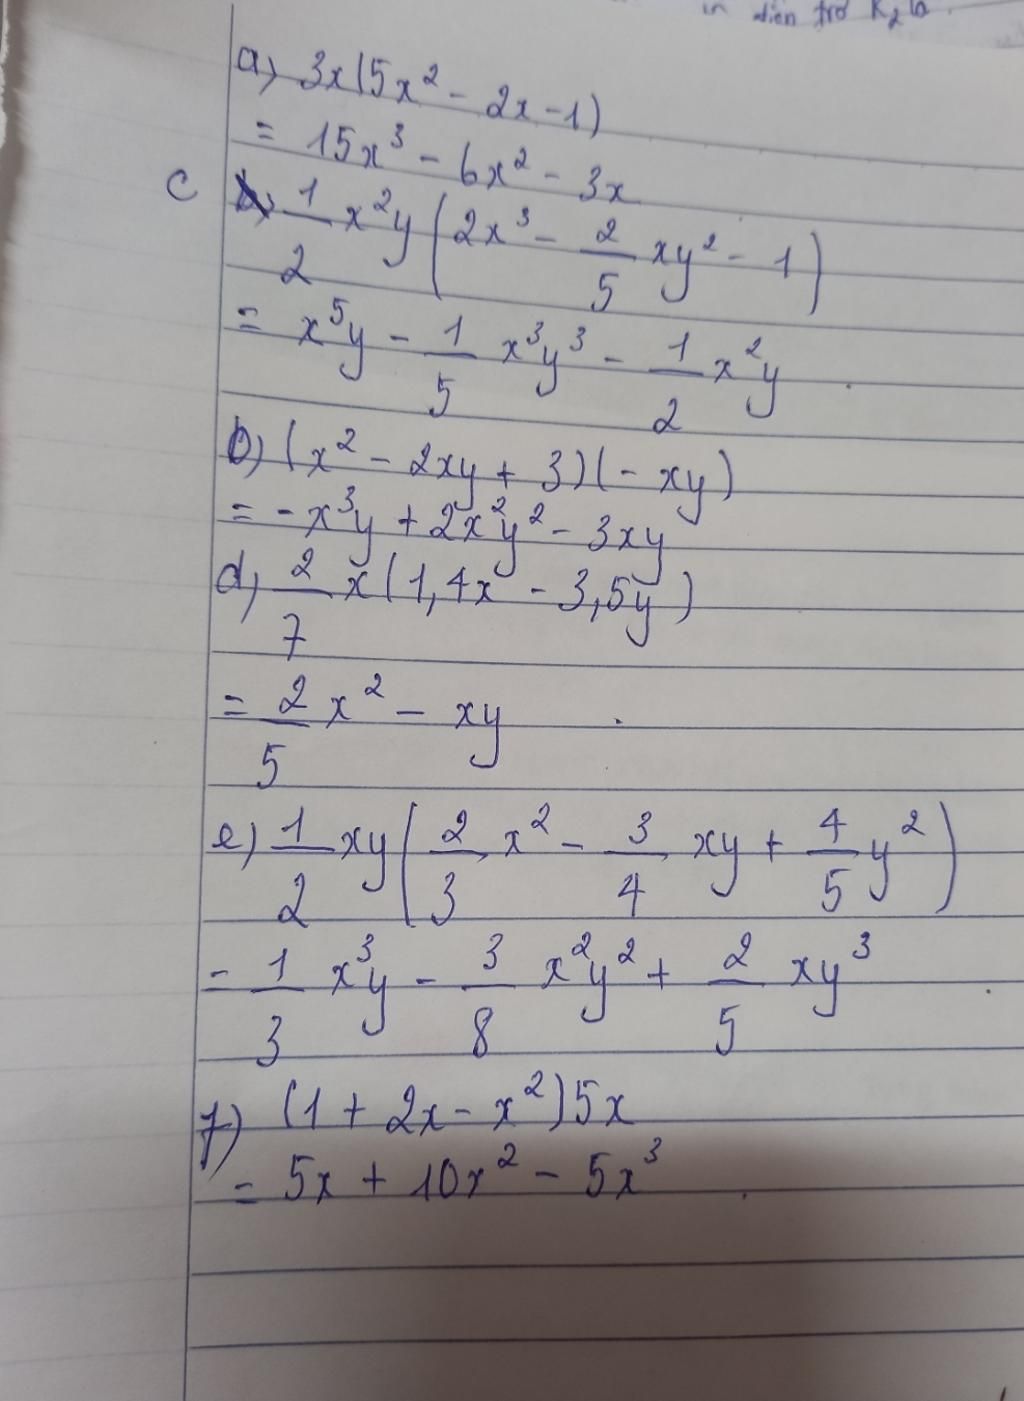 in điện trở K₂ là
a) 3x(5x² - 2x - 1)
= 15x³ - 6x² - 3x
c 1/2 x²y (2x³ - 2/5 xy² - 1)
= x⁵y - 1/5 x³y³ - 1/2 x²y
b) (x² - 2xy + 3)(- xy)
= - x³y + 2x²y² - 3xy
d) 2/7 x(1,4x - 3,5y)
= 2/5 x² - xy
e) 1/2 xy (2/3 x² - 3/4 xy + 4/5 y²)
= 1/3 x³y - 3/8 x²y² + 2/5 xy³
f) (1 + 2x - x²)5x
= 5x + 10x² - 5x³